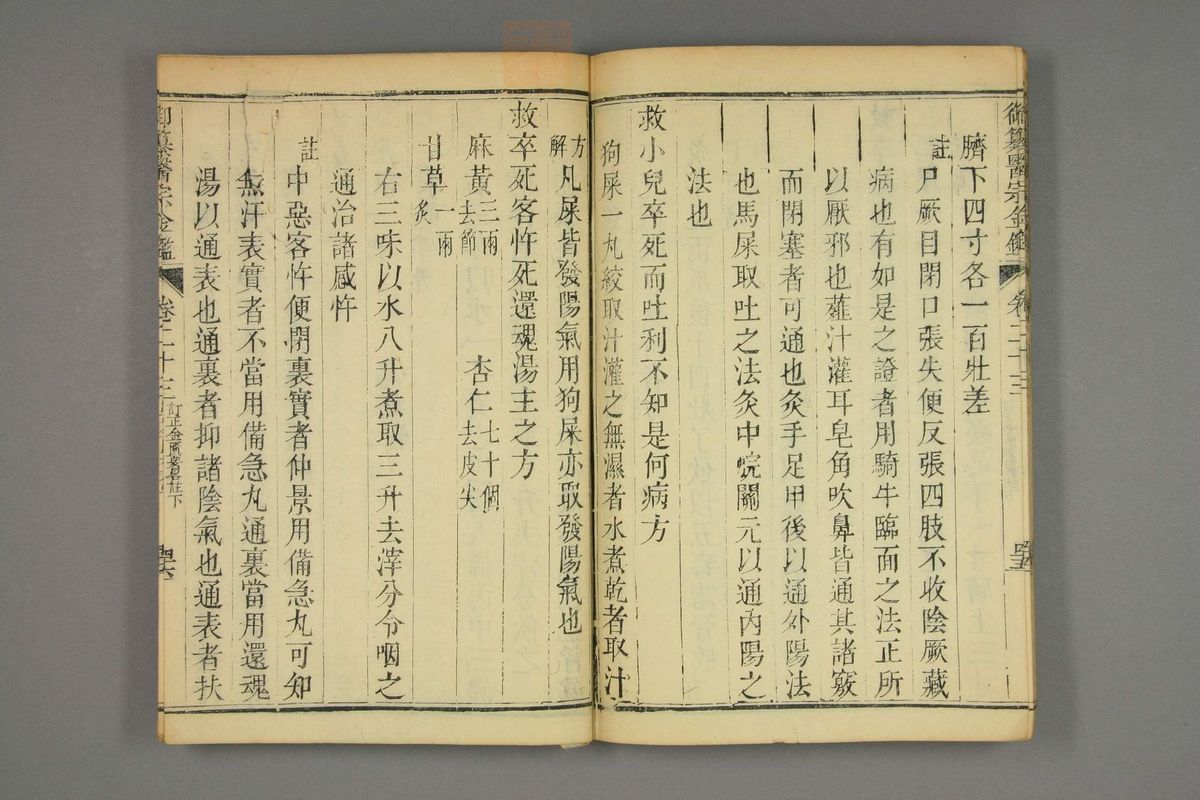 御纂醫宗金鑑 卷二十三
臍下四寸各一百壯差
註尸厥目閉口張失便反張四肢不收陰厥藏
病也有如是之證者用騎牛臨面之法正所
以厭邪也薤汁灌耳皂角吹鼻皆通其諸竅
而閉塞者可通也灸手足甲後以通外陽法
也馬屎取吐之法灸中脘關元以通內陽之
法也
救小兒卒死而吐利不知是何病方
狗屎一丸絞取汁灌之無濕者水煮乾者取汁
方解凡屎皆發陽氣用狗屎亦取發陽氣也
救卒死客忤死還魂湯主之方
麻黃三兩去節 杏仁七十個去皮尖
甘草一兩炙
右三味以水八升煮取三升去滓分令咽之
通治諸感忤
註中惡客忤便閉裏實者仲景用備急丸可知
無汗表實者不當用備急丸通裏當用還魂
湯以通表也通裏者抑諸陰氣也通表者扶
御纂醫宗金鑑 卷二十三 訂正金匱要畧註下